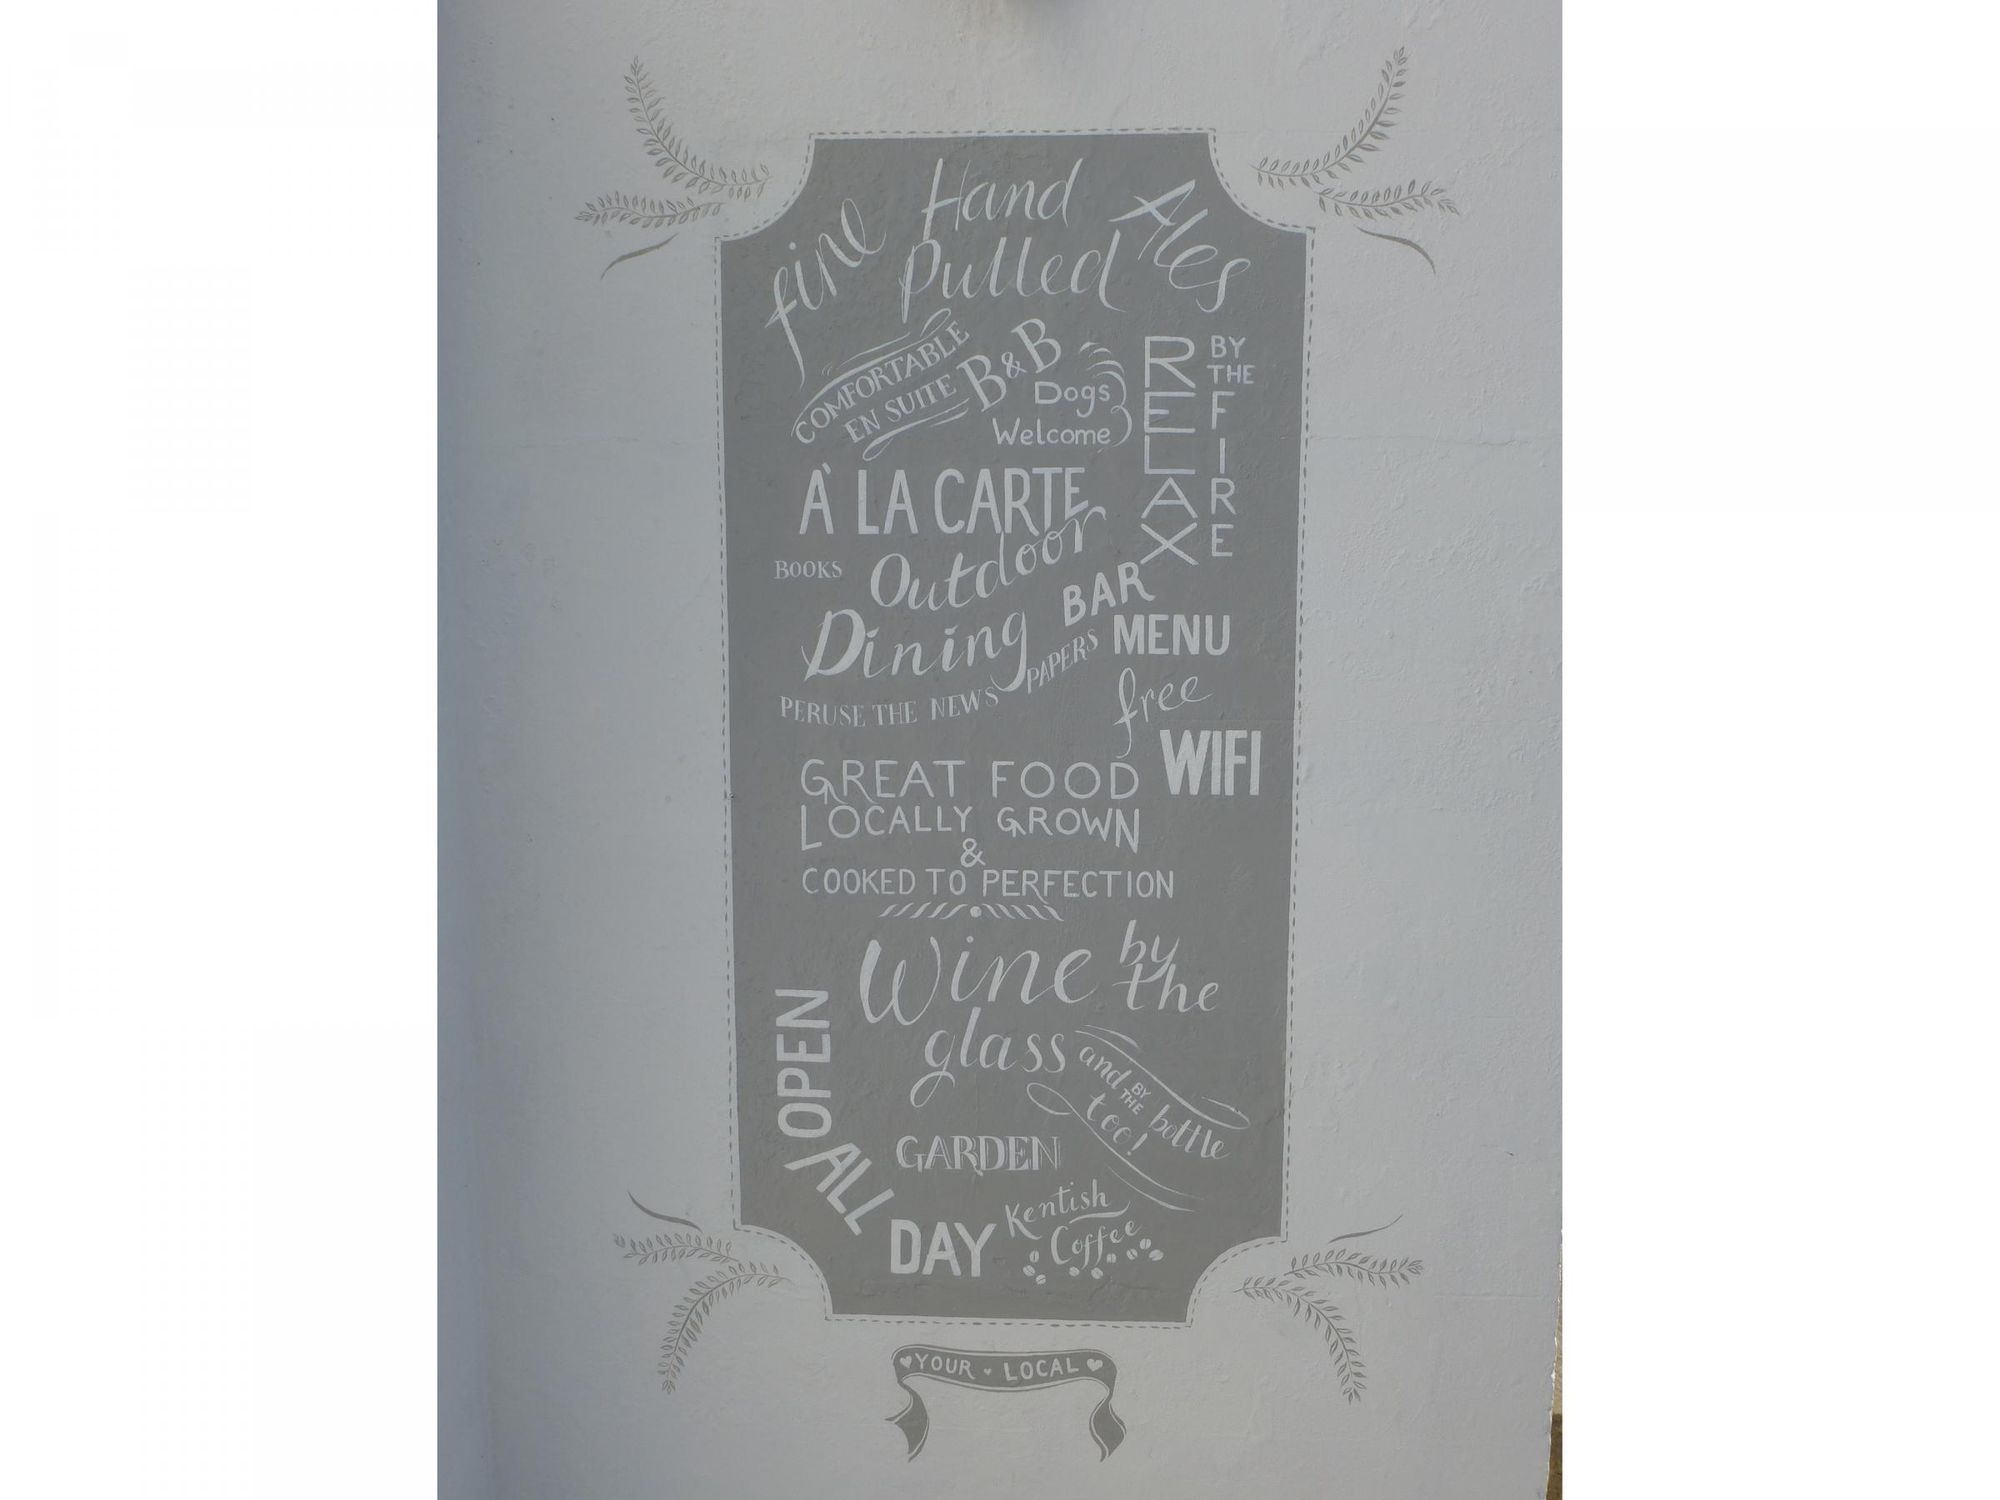 fine Hand Pulled Ales
COMFORTABLE
EN SUITE B&B
Dogs
Welcome
RELAX
BY
THE
FIRE
À LA CARTE
BOOKS
Outdoor
Dining
BAR
MENU
PERUSE THE NEWS PAPERS
free
WIFI
GREAT FOOD
LOCALLY GROWN
&
COOKED TO PERFECTION
Wine by the
glass and BY THE bottle
too!
OPEN ALL DAY
GARDEN
Kentish
Coffee
YOUR LOCAL